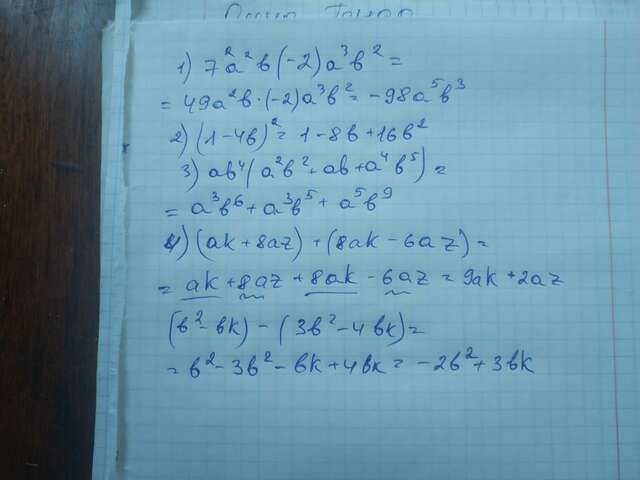 1) 7²a²b(-2)a³b² =
= 49a²b·(-2)a³b² = -98a⁵b³
2) (1-4b)² = 1-8b+16b²
3) ab⁴(a²b²+ab+a⁴b⁵) =
= a³b⁶ + a³b⁵ + a⁵b⁹
4) (ak+8az)+(8ak-6az) =
= ak+8az+8ak-6az = 9ak+2az
(b²-bk)-(3b²-4bk) =
= b²-3b²-bk+4bk = -2b²+3bk